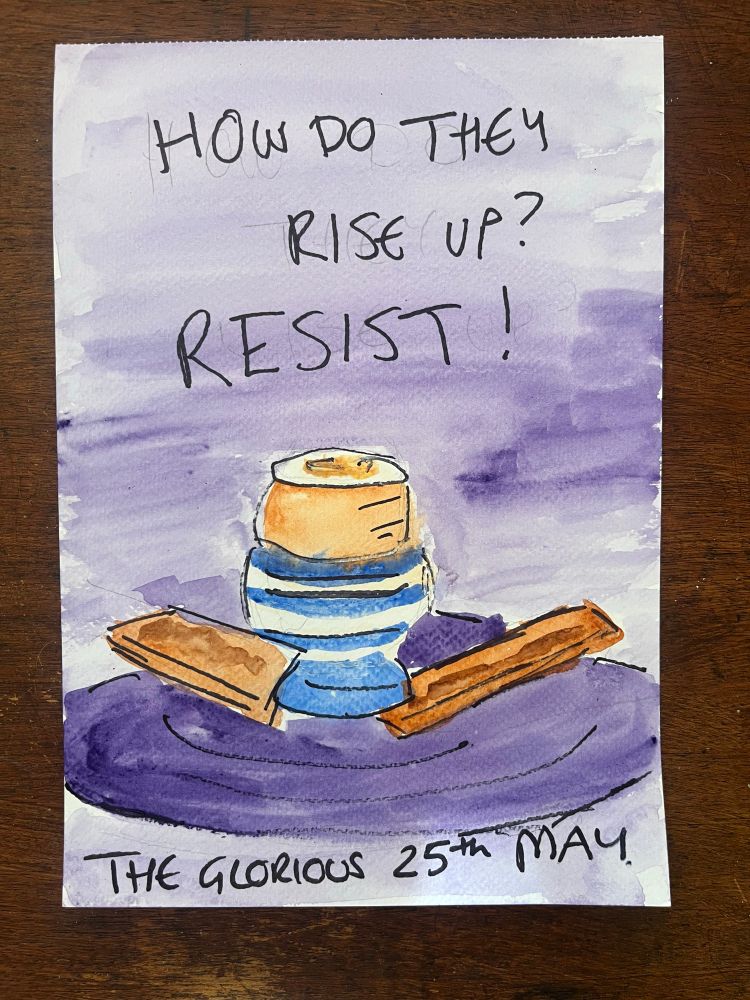 HOW DO THEY
RISE UP?
RESIST!
THE GLORIOUS 25th MAY.